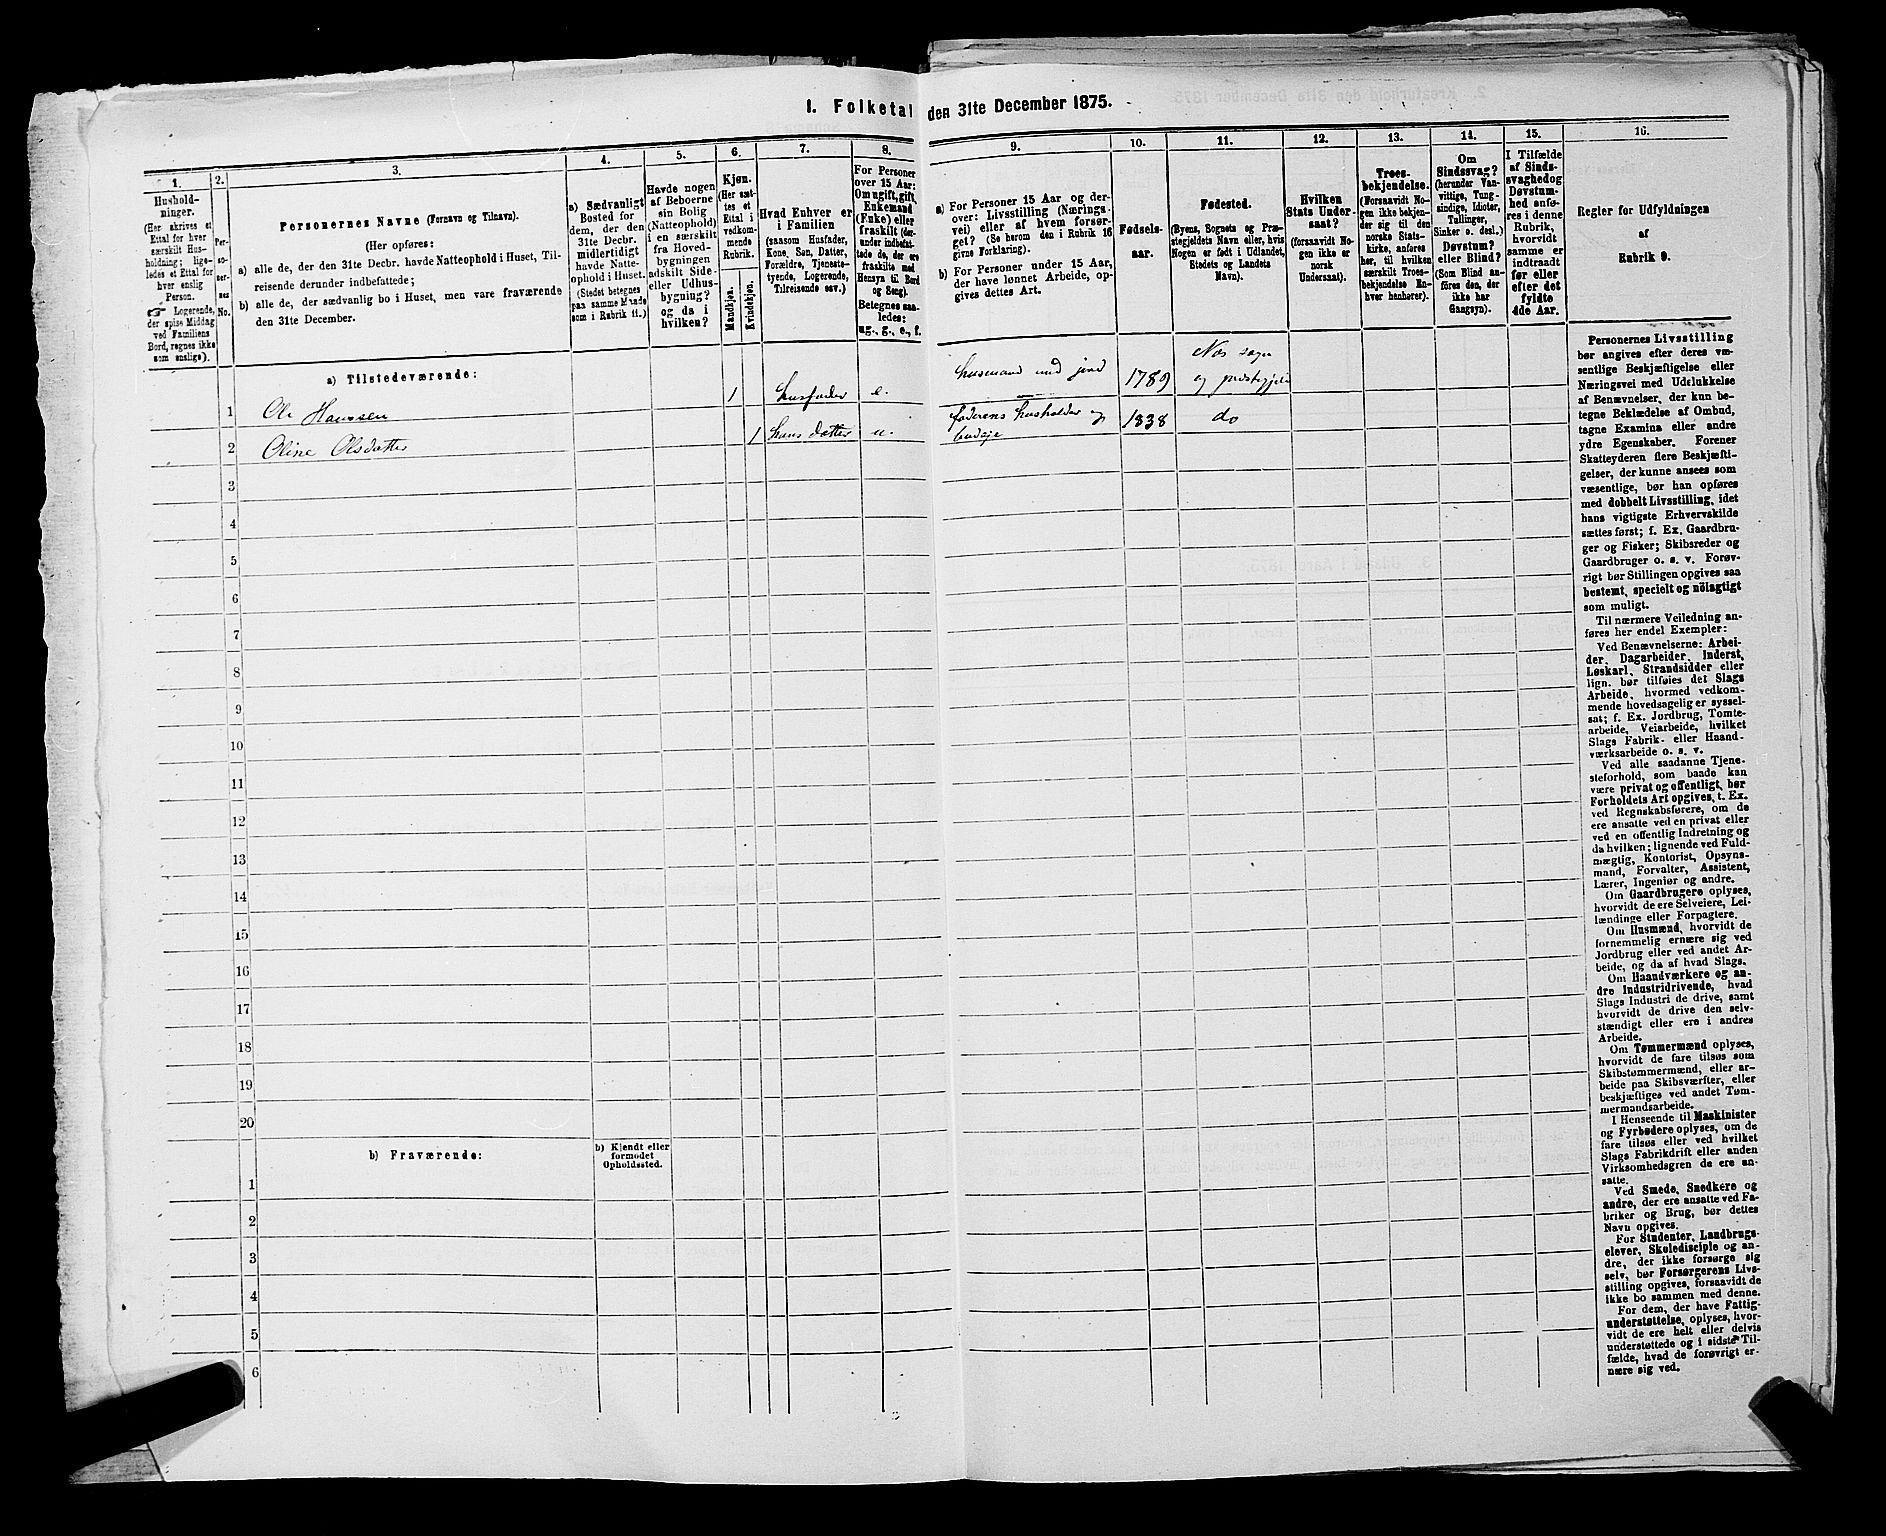 1. Folketal den 31te December 1875.
1.
2.
3.
4.
5.
6.
7.
8.
9.
10.
11.
12.
13.
14.
15.
16.
Hushold-
ninger.
(Her skrives et
Ettal for hver
særskilt Hus-
holdning; lige-
ledes et Ettal for
hver enslig
Person.
☞ Logerende,
der spise Middag
ved Familiens
Bord, regnes ikke
som enslige).
Per-
soner-
nes
No.
Personernes Navne (Fornavn og Tilnavn).
(Her opføres:
a) alle de, der den 31te Decbr. havde Natteophold i Huset, Til-
reisende derunder indbefattede;
b) alle de, der sædvanlig bo i Huset, men vare fraværende
den 31te December.
a) Sædvanligt
Bosted for
dem, der den
31te Decbr.
midlertidigt
havde Natte-
ophold i Huset.
(Stedet betegnes
paa samme Maade
som i Rubrik 11.)
Havde nogen
af Beboerne
sin Bolig
(Natteophold)
i en særskilt
fra Hoved-
bygningen
adskilt Side-
eller Udhus-
bygning?
og da i
hvilken?
Kjøn.
(Her sæt-
tes et
Ettal i
vedkom-
mende
Rubrik.
Mandkjøn.
Kvindekjøn.
Hvad Enhver er
i Familien
(saasom Husfader,
Kone, Søn, Datter,
Forældre, Tjeneste-
tyende, Logerende,
Tilreisende osv.)
For Personer
over 15 Aar:
Om ugift, gift,
Enkemand
(Enke) eller
fraskilt (der-
under indbefat-
tede de, der ere
fraskilte med
Hensyn til Bord
og Seng).
Betegnes saa-
ledes:
ug., g., e., f.
a) For Personer 15 Aar og der-
over: Livsstilling (Nærings-
vei) eller af hvem forsør-
get? (Se herom den i Rubrik 16
givne Forklaring).
b) For Personer under 15 Aar,
der have lønnet Arbeide, op-
gives dettes Art.
Fødsels-
aar.
Fødested.
(Byens, Sognets og Præ-
stegjeldets Navn eller, hvis
Nogen er født i Udlandet,
Stedets og Landets
Navn).
Hvilken
Stats Under-
saat?
(forsaavidt No-
gen ikke er
norsk
Undersaat).
Troes-
bekjendelse.
(Forsaavidt No-
gen ikke bekjen-
der sig til den
norske Stats-
kirke, anføres
her, til hvilken
særskilt Troes-
bekjendelse En-
hver henhører).
Om
Sindssvag?
(herunder Van-
vittige, Tung-
sindige, Idioter,
Tullinger,
Sinker o. desl.)
Døvstum?
eller Blind?
(Som Blind an-
føres den, der
ikke har
Gangsyn).
I Tilfælde
af Sinds-
svaghed og
Døvstum-
hed anfø-
res i denne
Rubrik,
hvorvidt
samme er
indtraadt
før eller
efter det
fyldte
4de Aar.
Regler for Udfyldningen
af
Rubrik 9.
a) Tilstedeværende:
1 Ole Hanssen 1 husfader e. husmand med jord 1789 Nes sogn
og præstegjeld
2 Oline Olsdatter 1 hans datter u. faderens husholder og 1838 do
budeje
3
4
5
6
7
8
9
10
11
12
13
14
15
16
17
18
19
20
b) Fraværende:
b) Kjendt eller
formodet
Opholdssted.
1
2
3
4
5
6
Personernes Livsstilling
bør angives efter deres væ-
sentlige Beskjæftigelse eller
Næringsvei med Udelukkelse
af Benævnelser, der kun be-
tegne Beklædelse af Ombud,
tagne Examina eller andre
ydre Egenskaber. Forener
Skatteyderen flere Beskjæfti-
gelser, der kunne ansees som
væsentlige, bør han opføres
med dobbelt Livsstilling, idet
hans vigtigste Erhvervskilde
sættes først; f. Ex. Gaardbru-
ger og Fisker; Skibsreder og
Gaardbruger o. s. v. Forøv-
rigt bør Stillingen opgives saa
bestemt, specielt og nøiagtigt
som muligt.
Til nærmere Veiledning an-
føres her endel Exempler:
Ved Benævnelserne: Arbei-
der, Dagarbeider, Inderst,
Løskarl, Strandsidder eller
lign. bør tilføies det Slags
Arbeide, hvormed vedkom-
mende hovedsagelig er syssel-
sat; f. Ex. Jordbrug, Tomte-
arbeide, Veiarbeide, hvilket
Slags Fabrik- eller Haand-
værksarbeide o. s. v.
Ved alle saadanne Tjene-
steforhold, som baade kan
være privat og offentligt, bør
Forholdets Art opgives, t. Ex.
ved Regnskabsførere, om de
ere ansatte ved en privat eller
ved en offentlig Indretning og
da hvilken; lignende ved Fuld-
mægtig, Kontorist, Opsyns-
mand, Forvalter, Assistent,
Lærer, Ingeniør og andre.
Om Gaardbrugere oplyses,
hvorvidt de ere Selveiere, Lei-
lændinge eller Forpagtere.
Om Husmænd, hvorvidt de
fornemmelig ernære sig ved
Jordbrug eller ved andet Ar-
beide, og da af hvad Slags.
Om Haandværkere og an-
dre Industridrivende, hvad
Slags Industri de drive, samt
hvorvidt de drive den selv-
stændigt eller ere i andres
Arbeide.
Om Tømmermænd oplyses,
hvorvidt de fare tilsøs som
Skibstømmermænd, eller ar-
beide paa Skibsværfter, eller
beskjæftiges ved andet Tøm-
mermandsarbeide.
I Henseende til Maskinister
og Fyrbødere oplyses, om de
fare tilsøs eller ved hvilket
Slags Fabrikdrift eller anden
Virksomhedsgren de ere an-
satte.
Ved Smede, Snedkere og
andre, der ere ansatte ved Fa-
briker og Brug, bør dettes
Navn opgives.
For Studenter, Landbrugs-
elever, Skoledisciple og an-
dre, der ikke forsørge sig
selv, bør Forsørgerens Livs-
stilling opgives, forsaavidt de
ikke bo sammen med denne.
For dem, der have Fattig-
understøttelse, oplyses, hvor-
vidt de ere helt eller delvis
understøttede og i sidste Til-
fælde, hvad de forøvrigt er-
nære sig ved.